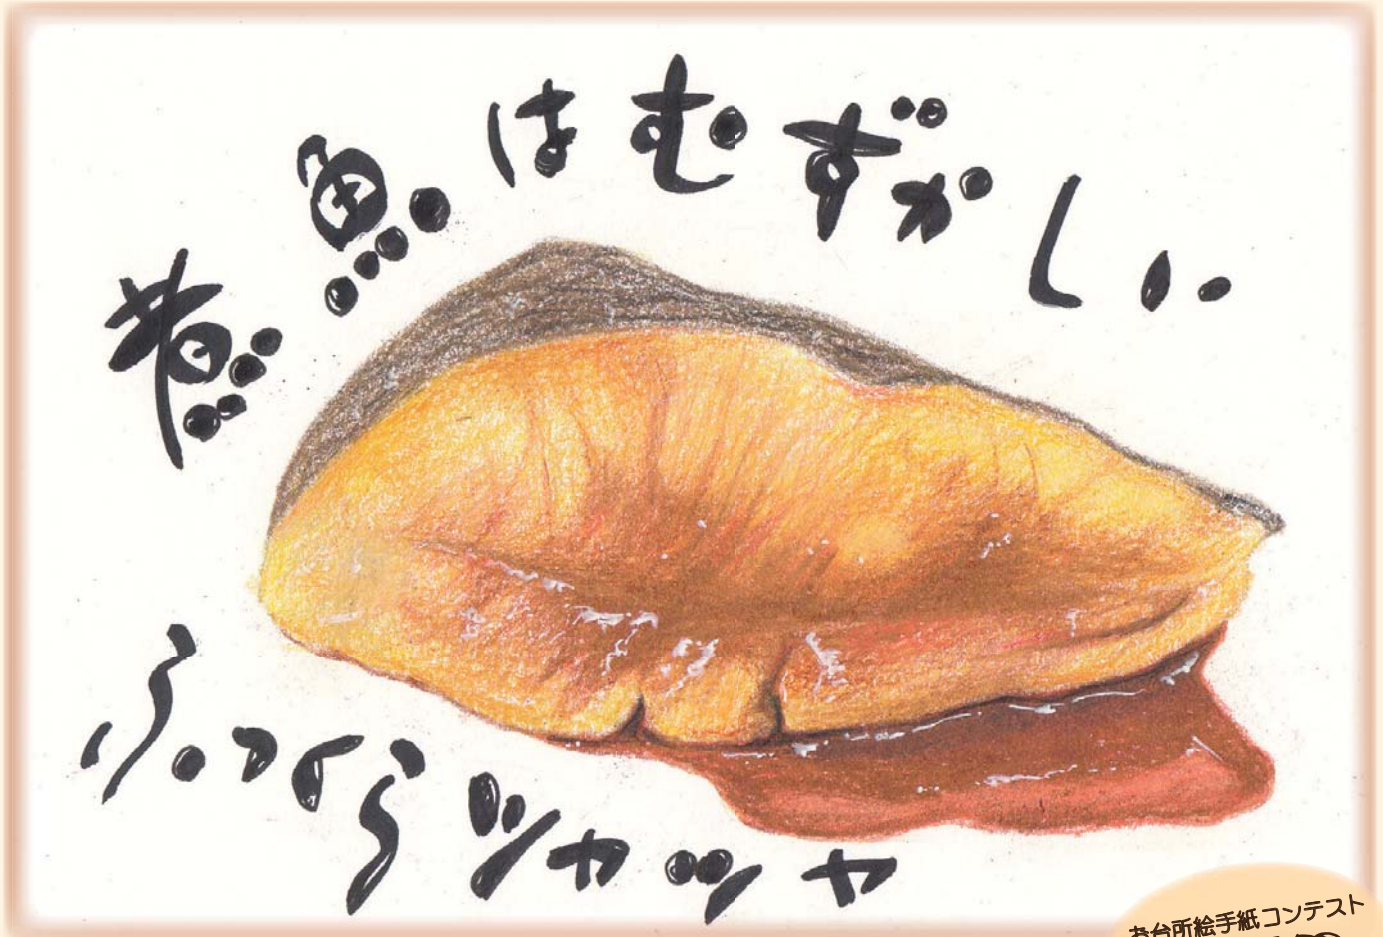 煮魚はむずかしい
ふっくらツヤッヤ
お台所絵手紙コンテスト